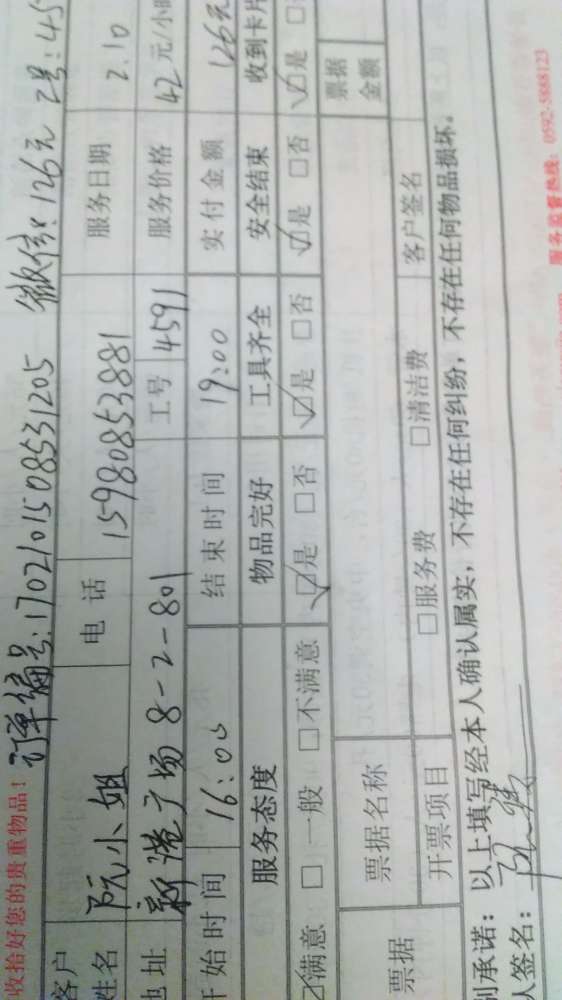 收拾好您的贵重物品！ 订单编号：170210150853 1205 微信：126元 2号：45
客户姓名 阮小姐 电话 15980853881 服务日期 2.10
地址 新港广场 8-2-801 工号 4591 服务价格 42元/小时
开始时间 16:00 结束时间 19:00 实付金额 126元
服务态度 物品完好 工具齐全 安全结束 收到卡片
☑满意 □一般 □不满意 ☑是 □否 ☑是 □否 ☑是 □否 ☑是
票据 票据名称 票据金额
开票项目 □服务费 □清洁费 客户签名
承诺：以上填写经本人确认属实，不存在任何纠纷，不存在任何物品损坏。
人签名：
服务监督热线：0592-5888123